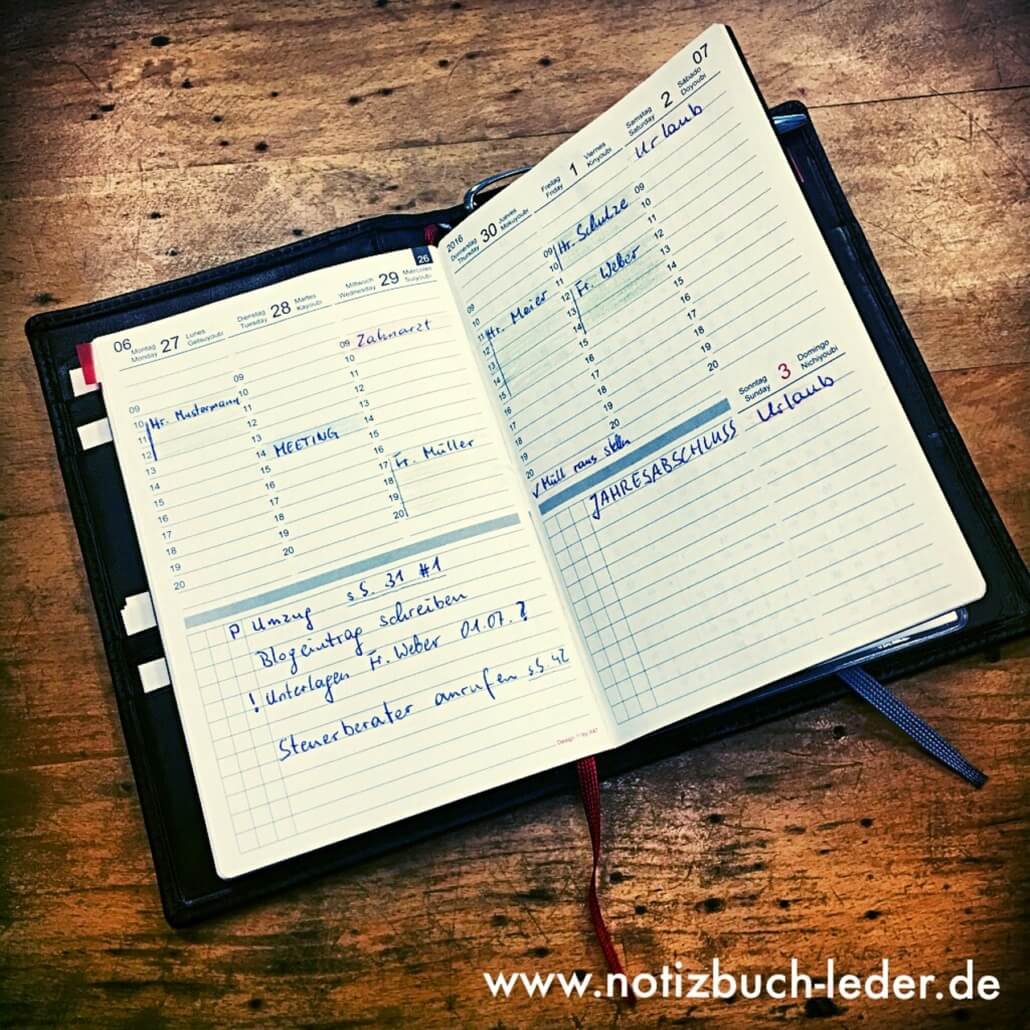 06
Montag
Monday
27
Lunes
Getsuyoubi
Dienstag
Tuesday
28
Martes
Kayoubi
Mittwoch
Wednesday
29
Miércoles
Suiyoubi
26
09
10 Hr. Mustermann
11
12
13
14
15
16
17
18
19
20
09
10
11
12
13
14 MEETING
15
16
17
18
19
20
09 Zahnarzt
10
11
12
13
14
15
16
17 Fr. Müller
18
19
20
P Umzug s.S. 31 #1
Blogeintrag schreiben
! Unterlagen Fr. Weber 01.07. ?
Steuerberater anrufen s.S. 42
2016
Donnerstag
Thursday
30
Jueves
Mokuyoubi
Freitag
Friday
1
Viernes
Kinyoubi
Samstag
Saturday
2
Sábado
Doyoubi
07
Urlaub
09
10
11 Hr. Meier
12
13
14
15
16
17
18
19
20
✓ Müll raus stellen
09 Hr. Schulze
10
11
12 Fr. Weber
13
14
15
16
17
18
19
20
09
10
11
12
13
14
15
16
17
18
19
20
Sonntag
Sunday
3
Domingo
Nichiyoubi
Urlaub
JAHRESABSCHLUSS
www.notizbuch-leder.de